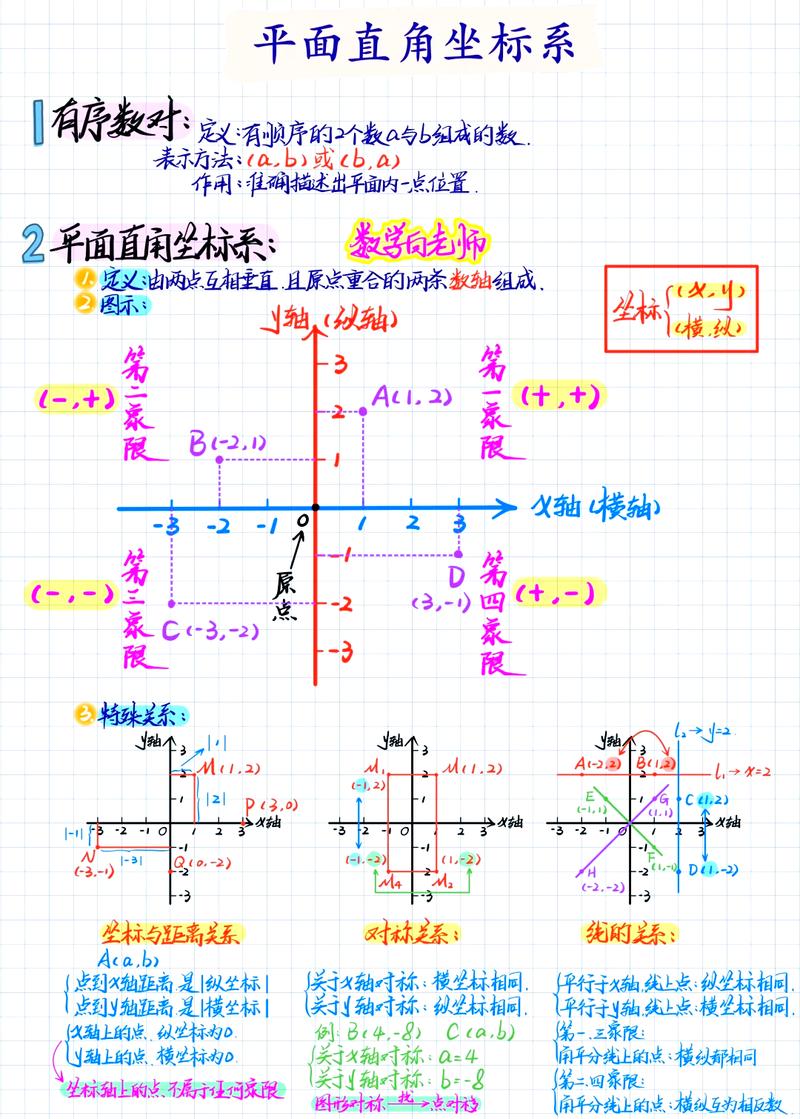 平面直角坐标系
1 有序数对:
定义:有顺序的2个数a与b组成的数.
表示方法:(a,b)或(b,a)
作用:准确描述出平面内一点位置.
2 平面直角坐标系:
数学向老师
1. 定义:由两点互相垂直,且原点重合的两条数轴组成.
2. 图示:
坐标{(x,y)
(横,纵)
y轴(纵轴)
第二象限
(-,+)
第一象限
(+,+)
3
2
1
A(1,2)
B(-2,1)
-3 -2 -1 O 1 2 3
x轴(横轴)
原点
-1
-2
-3
第三象限
(-,-)
C(-3,-2)
D
(3,-1)
第四象限
(+,-)
3. 特殊关系:
y轴
3
2
1
|1|
M(1,2)
|2|
P(3,0)
-3 -2 -1 0 1 2 3 x轴
|-1|
|-3|
N
(-3,-1)
-1
-2
-3
Q(0,-2)
y轴
3
2
1
M₁
(-1,2)
M(1,2)
-3 -2 -1 0 1 2 3 x轴
-1
-2
-3
(-1,-2)
M₄
(1,-2)
M₂
y轴
3
2
1
l₂→y=2
A(-2,2)
B(1,2)
l₁→x=2
E
(-1,1)
G
(1,1)
C(1,2)
-3 -2 -1 0 1 2 3 x轴
-1
-2
-3
F
(1,-1)
H
(-2,-2)
D(1,-2)
坐标与距离关系
A(a,b)
点到x轴距离是|纵坐标|
点到y轴距离是|横坐标|
x轴上的点,纵坐标为0.
y轴上的点,横坐标为0.
坐标轴上的点不属于任何象限
对称关系:
关于x轴对称:横坐标相同.
关于y轴对称:纵坐标相同.
例:B(4,-8) C(a,b)
关于x轴对称:a=4
关于y轴对称:b=-8
图形对称 找→ 点对称
线的关系:
平行于x轴,线上点:纵坐标相同.
平行于y轴,线上点:横坐标相同.
第一、三象限:
角平分线上的点:横纵都相同
第二、四象限:
角平分线上的点:横纵互为相反数